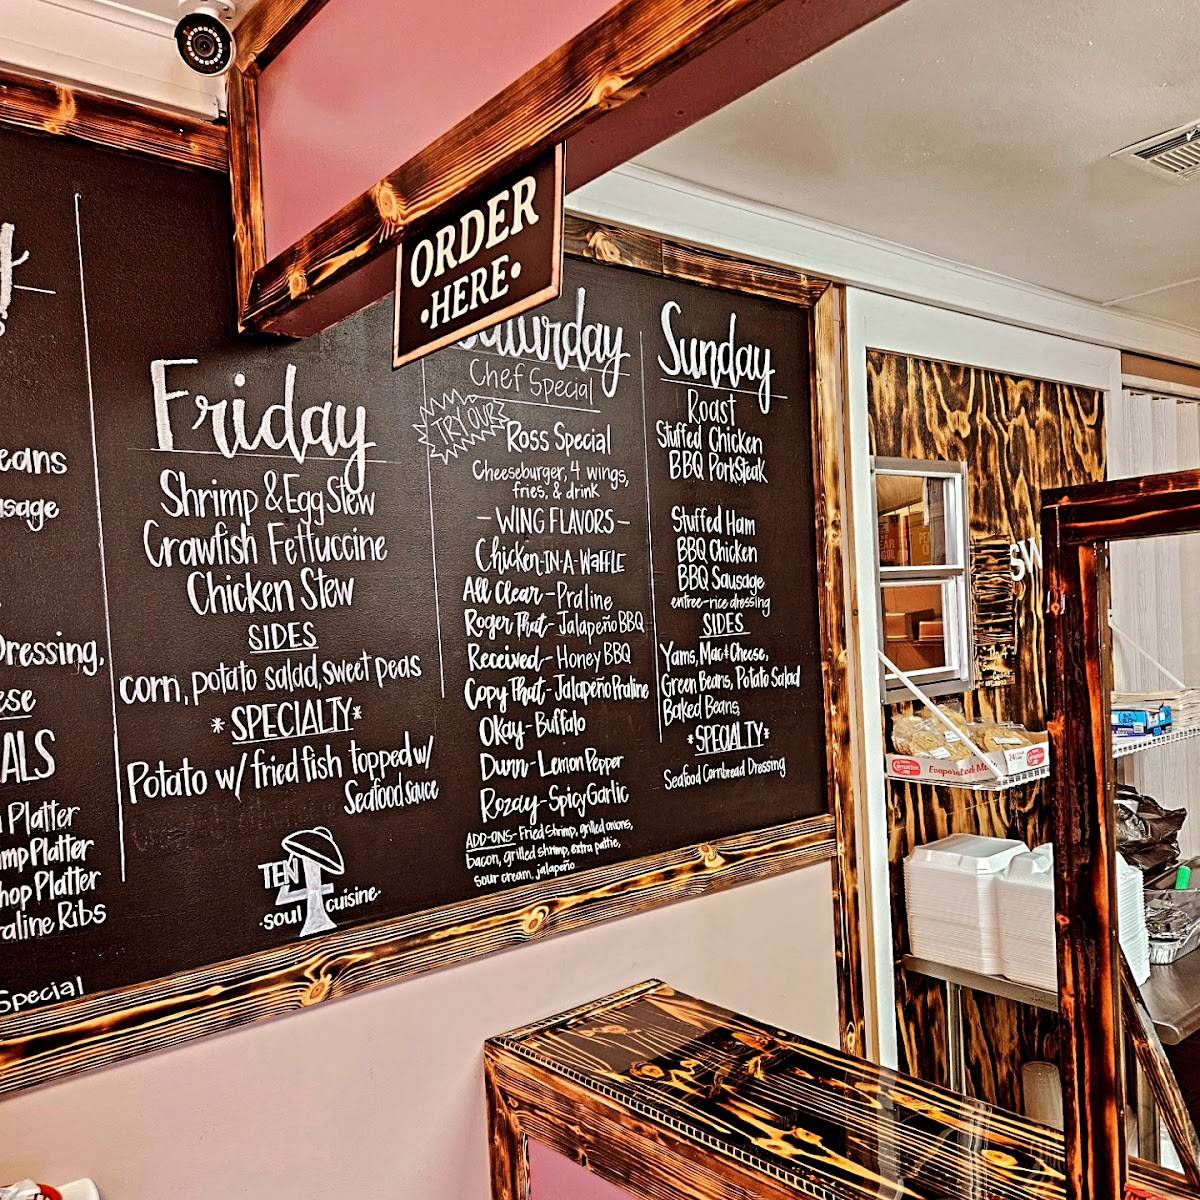 ORDER
·HERE·
eans
usage
Dressing,
ese
ALS
Platter
mp Platter
hop Platter
raline Ribs
Special
Friday
Shrimp & Egg Stew
Crawfish Fettuccine
Chicken Stew
SIDES
corn, potato salad, sweet peas
*SPECIALTY*
Potato w/ fried fish topped w/
Seafood sauce
TEN 4
·soul cuisine·
Saturday
Chef Special
TRY OUR
Ross Special
Cheeseburger, 4 wings,
fries, & drink
-WING FLAVORS-
Chicken-IN-A-Waffle
All Clear-Praline
Roger That-Jalapeño BBQ
Received-Honey BBQ
Copy That-Jalapeño Praline
Okay-Buffalo
Dunn-Lemon Pepper
Rozay-Spicy Garlic
ADD-ONS-Fried shrimp, grilled onions,
bacon, grilled shrimp, extra pattie,
sour cream, jalapeño
Sunday
Roast
Stuffed Chicken
BBQ Porksteak
Stuffed Ham
BBQ Chicken
BBQ Sausage
entree-rice dressing
SIDES
Yams, Mac & Cheese,
Green Beans, Potato Salad
Baked Beans,
*SPECIALTY*
Seafood Cornbread Dressing
SW
Carnation
Evaporated Mi
24